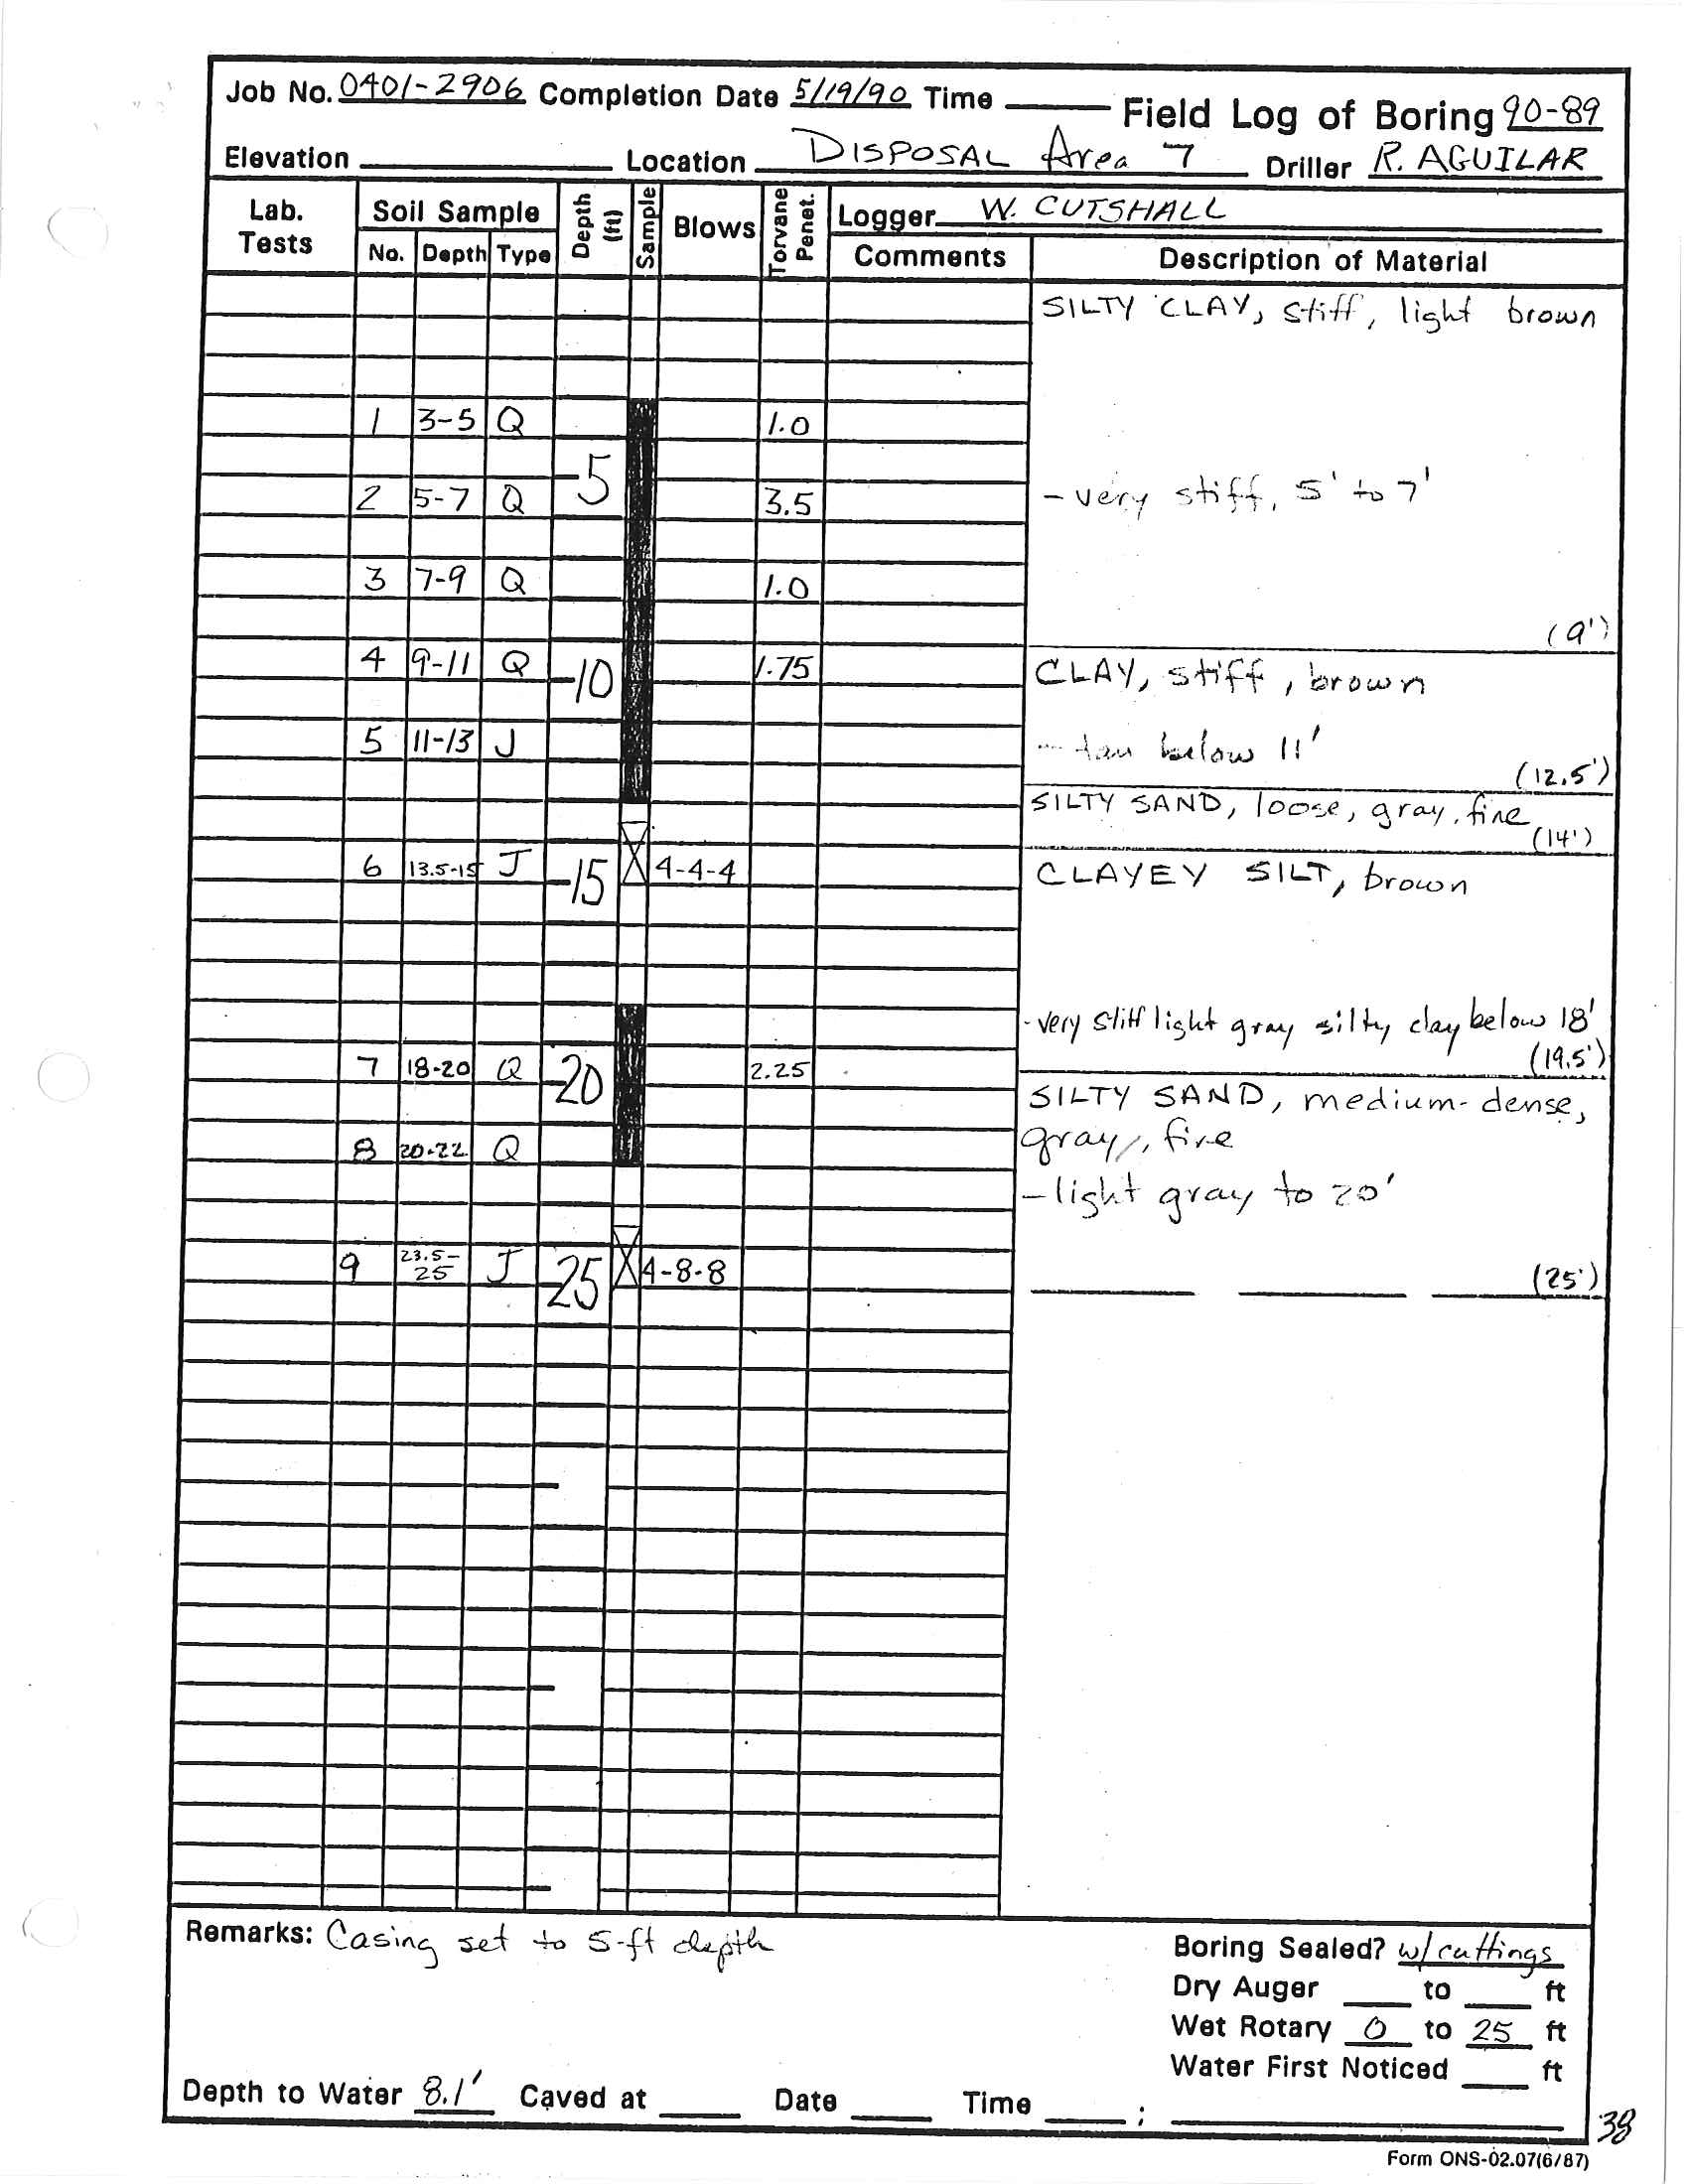 Job No. 0401-2906 Completion Date 5/19/90 Time Field Log of Boring 90-89
Elevation Location DISPOSAL Area 7 Driller R. AGUILAR
Lab. Tests Soil Sample Depth (ft) Sample Blows Torvane Penet. Logger W. CUTSHALL
No. Depth Type Comments Description of Material
SILTY CLAY, stiff, light brown
1 3-5 Q 1.0
-5
2 5-7 Q 3.5 - very stiff, 5' to 7'
3 7-9 Q 1.0
(9')
4 9-11 Q -10 1.75 CLAY, stiff, brown
5 11-13 J - tan below 11'
(12.5')
SILTY SAND, loose, gray, fine
(14')
6 13.5-15 J -15 4-4-4 CLAYEY SILT, brown
- very stiff light gray silty clay below 18'
(19.5')
7 18-20 Q -20 2.25
SILTY SAND, medium-dense,
8 20-22 Q gray, fine
- light gray to 20'
9 23.5-25 J -25 4-8-8 (25')
Remarks: Casing set to 5-ft depth
Boring Sealed? w/cuttings
Dry Auger to ft
Wet Rotary 0 to 25 ft
Water First Noticed ft
Depth to Water 8.1' Caved at Date Time ;
38
Form ONS-02.07(6/87)